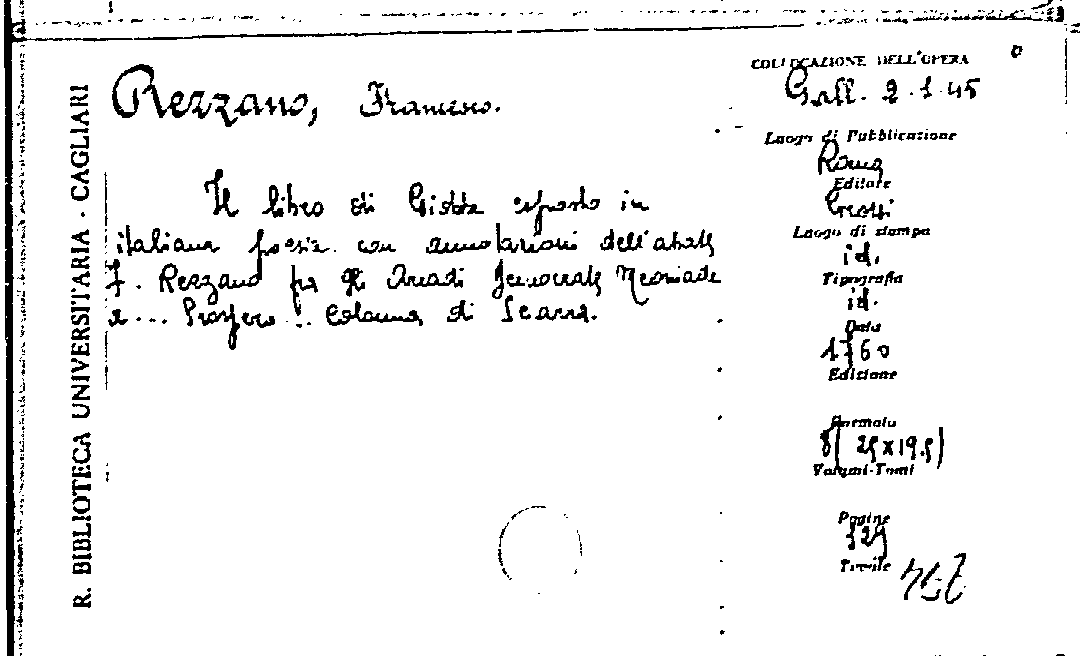 R. BIBLIOTECA UNIVERSITARIA · CAGLIARI
Rezzano, Francesco.
Il libro di Giobbe esposto in
italiana poesia con annotazioni dell'abate
F. Rezzano fra gli Arcadi Neoniade
e ... Prospero .. Colonna di Sciarra.
COLLOCAZIONE DELL'OPERA
Gall. 2.1.45
Luogo di Pubblicazione
Roma
Editore
Luogo di stampa
id.
Tipografia
id.
Data
1760
Edizione
Formato
8( 25x19.5)
Volumi-Tomi
Pagine
329
Tavole